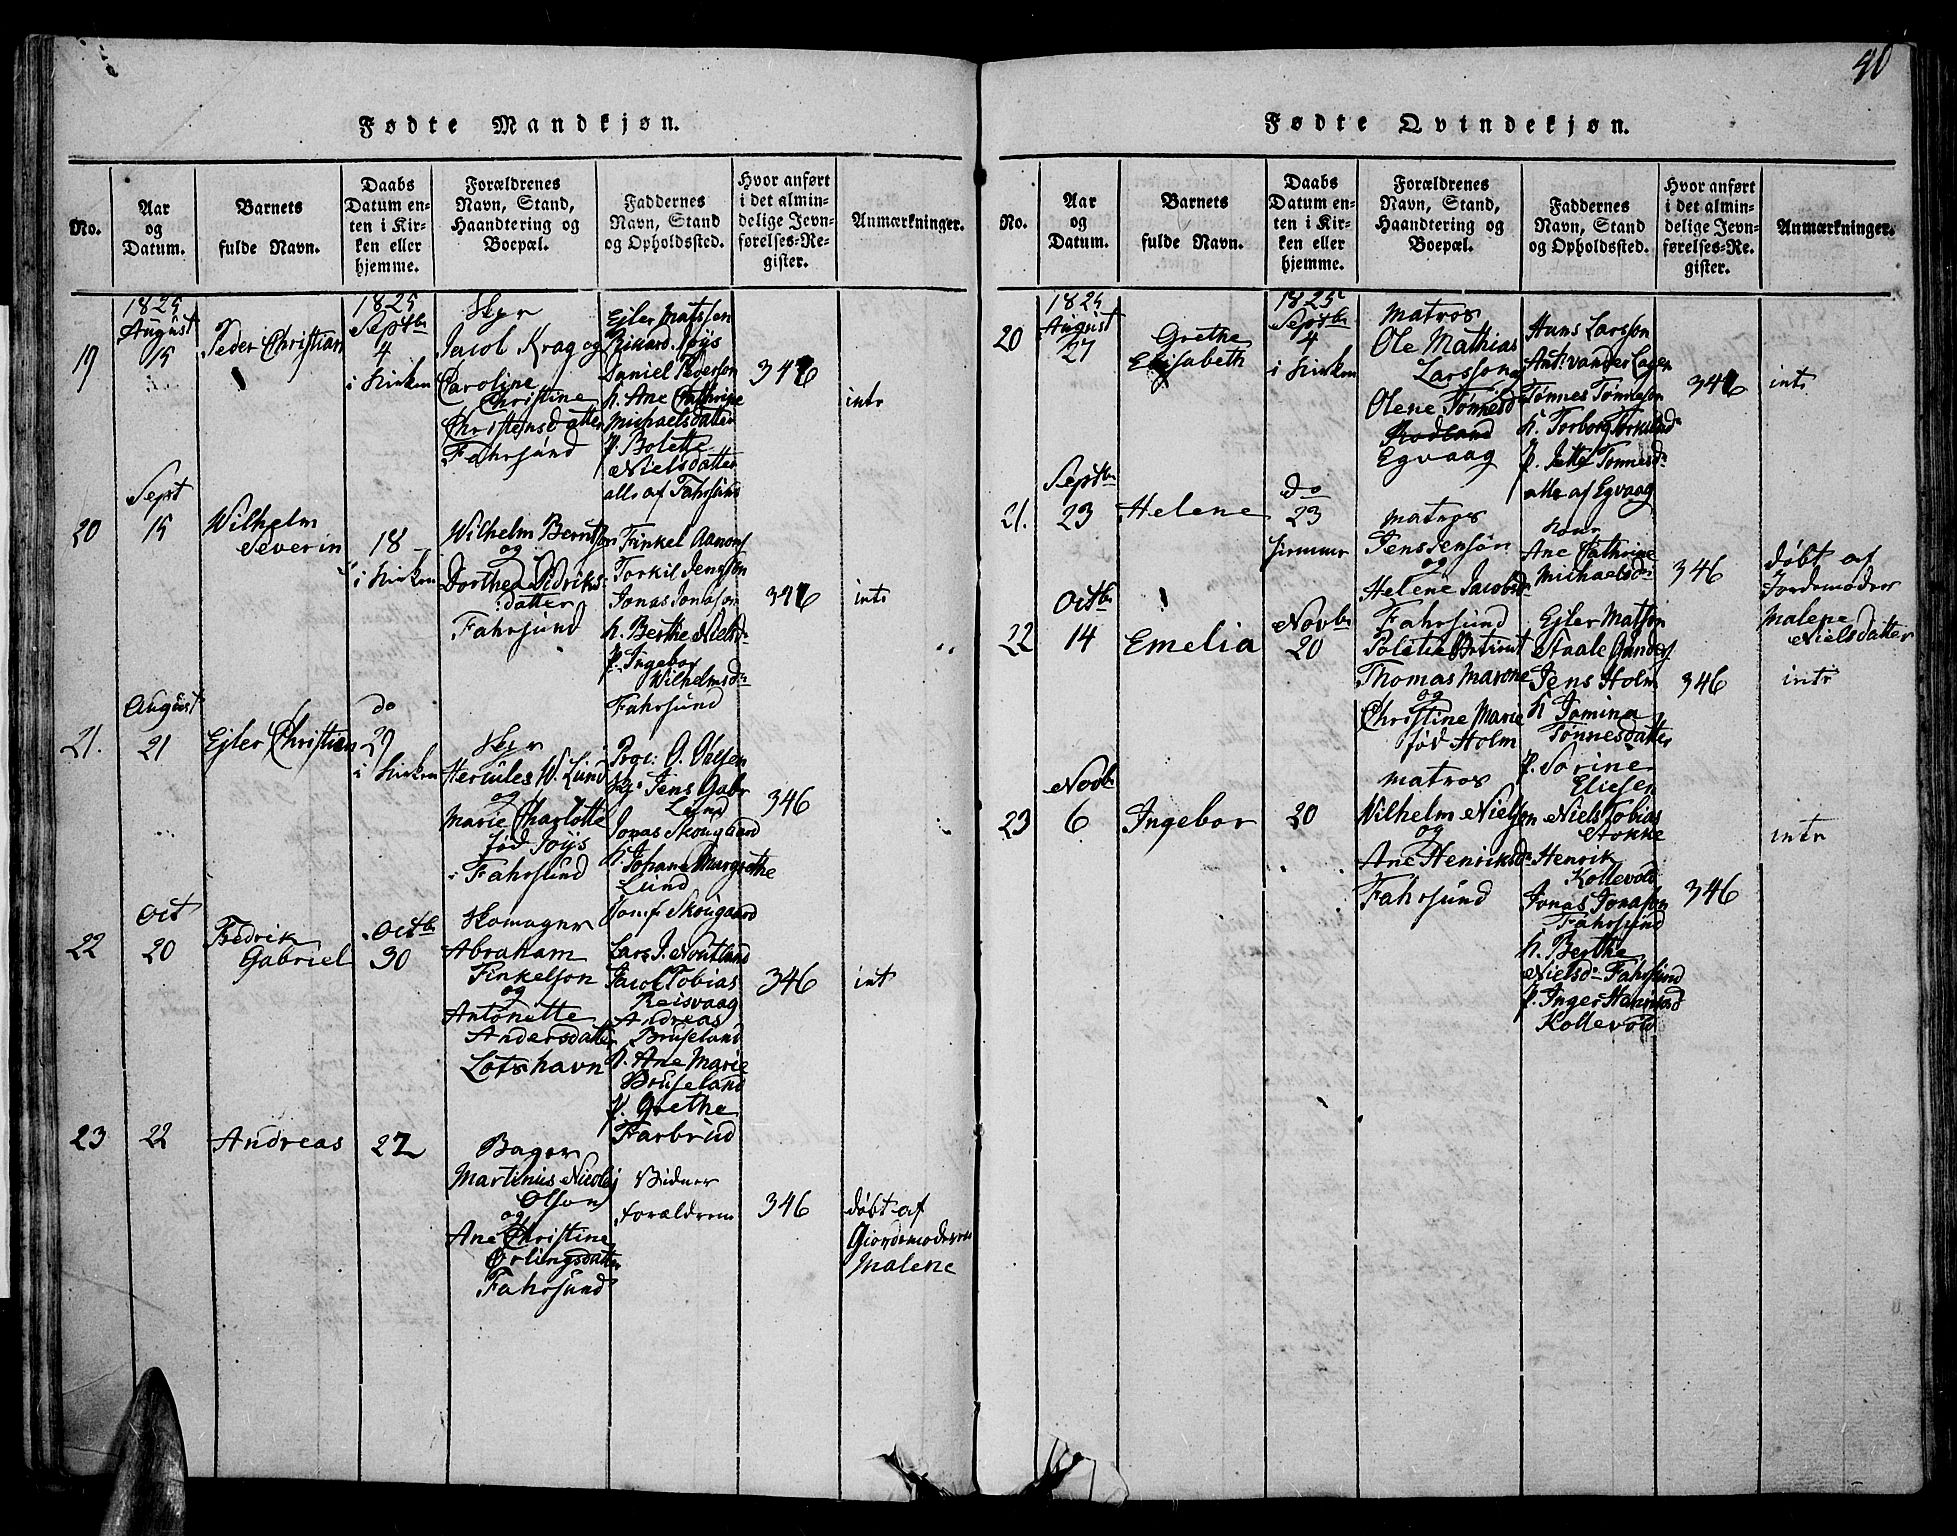 40
Fødte Mandkjøn.
No.
Aar
og
Datum.
Barnets
fulde Navn.
Daabs
Datum en-
ten i Kir-
ken eller
hjemme.
Forældrenes
Navn, Stand,
Haandtering og
Boepæl.
Faddernes
Navn, Stand
og Opholdssted.
Hvor anført
i det almin-
delige Jevn-
førelses-Re-
gister.
Anmærkninger.
19
1825
August
15
Peder Christian
1825
Septbr
4
i Kirken
Jacob Krag og
Caroline
Christine
Christensdatter
Fahrsund
Ejler Matssen
Rikard Joÿs
Daniel Pederson
h. Ane Cathrine
Michaelsdatter
p. Bolette
Nielsdatter
alle af Fahrsund
346
intr
20
Sept
15
Wilhelm
Severin
18
i Kirken
Wilhelm Berntson
og
Dorthea Didriks-
datter
Fahrsund
Finkel Aanons
Torkil Jensson
Jonas Jonason
h. Berthe Nielsdr
p. Ingebor
Wilhelmsdr
Fahrsund
346
intr
21.
August
21
Ejler Christian
do
29
i Kirken
Hercules W. Lund
og
Marie Charlotte
fød Joÿs
Fahrsund
Proc: O. Olsen
Jens Gabr
Lund
Jonas Skougaard
h. Johane Margrethe
Lund
Jomf. Skougaard
346
22
Oct
20
Fredrik
Gabriel
Octbr
30
Skomager
Abraham
Finkelson
og
Antonette
Andersdatter
Lotshavn
Lars J. Noutland
Jacob Tobias
Reisvaag
Andreas
Bruseland
h. Ane Marie
Bruseland
p. Grethe
Farbrud
346
int
23
22
Andreas
22
Bager
Martinus Nicolaj
Olson
og
Ane Christine
Erlingsdatter
Fahrsund
forældrene
346
døbt af
Giordemoderen
Malene
Fødte Qvindekjøn.
No.
Aar
og
Datum.
Barnets
fulde Navn.
Daabs
Datum en-
ten i Kir-
ken eller
hjemme.
Forældrenes
Navn, Stand,
Haandtering og
Boepæl.
Faddernes
Navn, Stand
og Opholdssted.
Hvor anført
i det almin-
delige Jevn-
førelses-Re-
gister.
Anmærkninger.
20
1825
August
27
Grethe
Elisabeth
1825
Septbr
4
i Kirken
Matros
Ole Mathias
Larsson og
Olene Tønnesd
Rødland
Egvaag
Hans Larsson
Ant: vander Lagen
Tønnes Tønneson
h. Torborg Torkilsd
p. Tonnesdr
alle af Egvaag
346
intr
21.
Septbr
23
Helene
do
23
hiemme
Matros
Jens Jensøn
og
Helene Jacobsd
Fahrsund
Ane Cathrine
Michaelsdr
346
døbt af
Jordemoder
Malene
Nielsdatter
22
Octbr
14
Emelia
Novbr
20
Politie Betient
Thomas Marone
og
Christine Marie
fød Holm
Ejler Matson
Staale Gunders
Jens Holm
h Jomina
Tønnesdatter
p. Sorine
Eliesen
346
intr
23
Novbr
6
Ingebor
20
Matros
Wilhelm Nielson
og
Ane Henriksdr
Fahrsund
Niels Tobias
Stokke
Henrik
Kollevold
Jonas Jonason
Fahrsund
h. Berthe
Nielsdr Fahrsund
p. Inger
Kollevold
346
intr